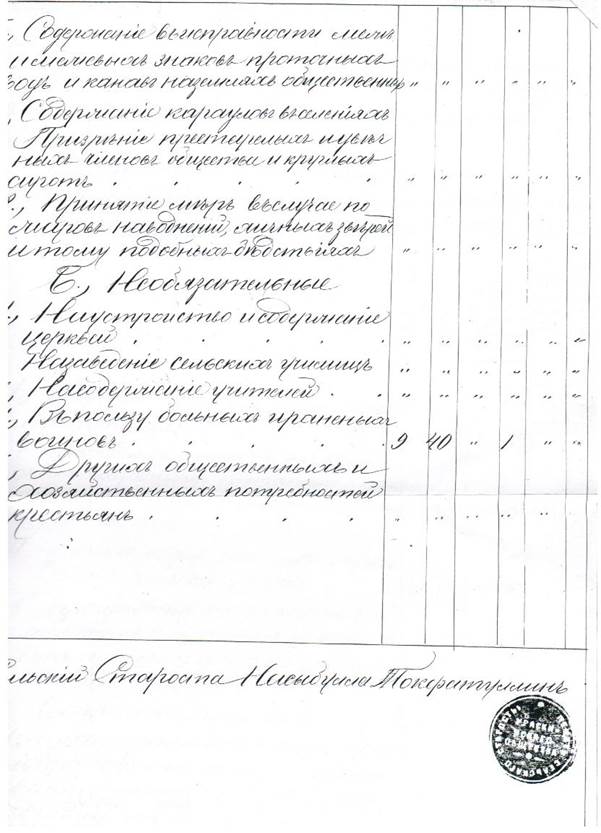 Содержаніе въ исправности межъ
и межевыхъ знаковъ проточныхъ
водъ и канавъ на земляхъ общественныхъ " " " " " "
Содержаніе карауловъ въ селеніяхъ
Призрѣніе престарелыхъ и увѣч
ныхъ членовъ общества и круглыхъ
сиротъ . . . . . " " " " " "
Принятіе мѣръ въ случае по
жаровъ наводненій,
и тому подобныхъ бедствіяхъ " " " " " "
Б., Необязательные
На устройство и содержаніе
церквей . . . . . " " " " " "
На заведеніе сельскихъ училищъ " " " " " "
На содержаніе учителей . . " " " " " "
Въ пользу больныхъ и раненыхъ
воиновъ . . . . . 9 40 " 1 " "
Другихъ общественныхъ и
хозяйственныхъ потребностей
крестьянъ . . . . . " " " " " "
ельскій Староста Насыбулла